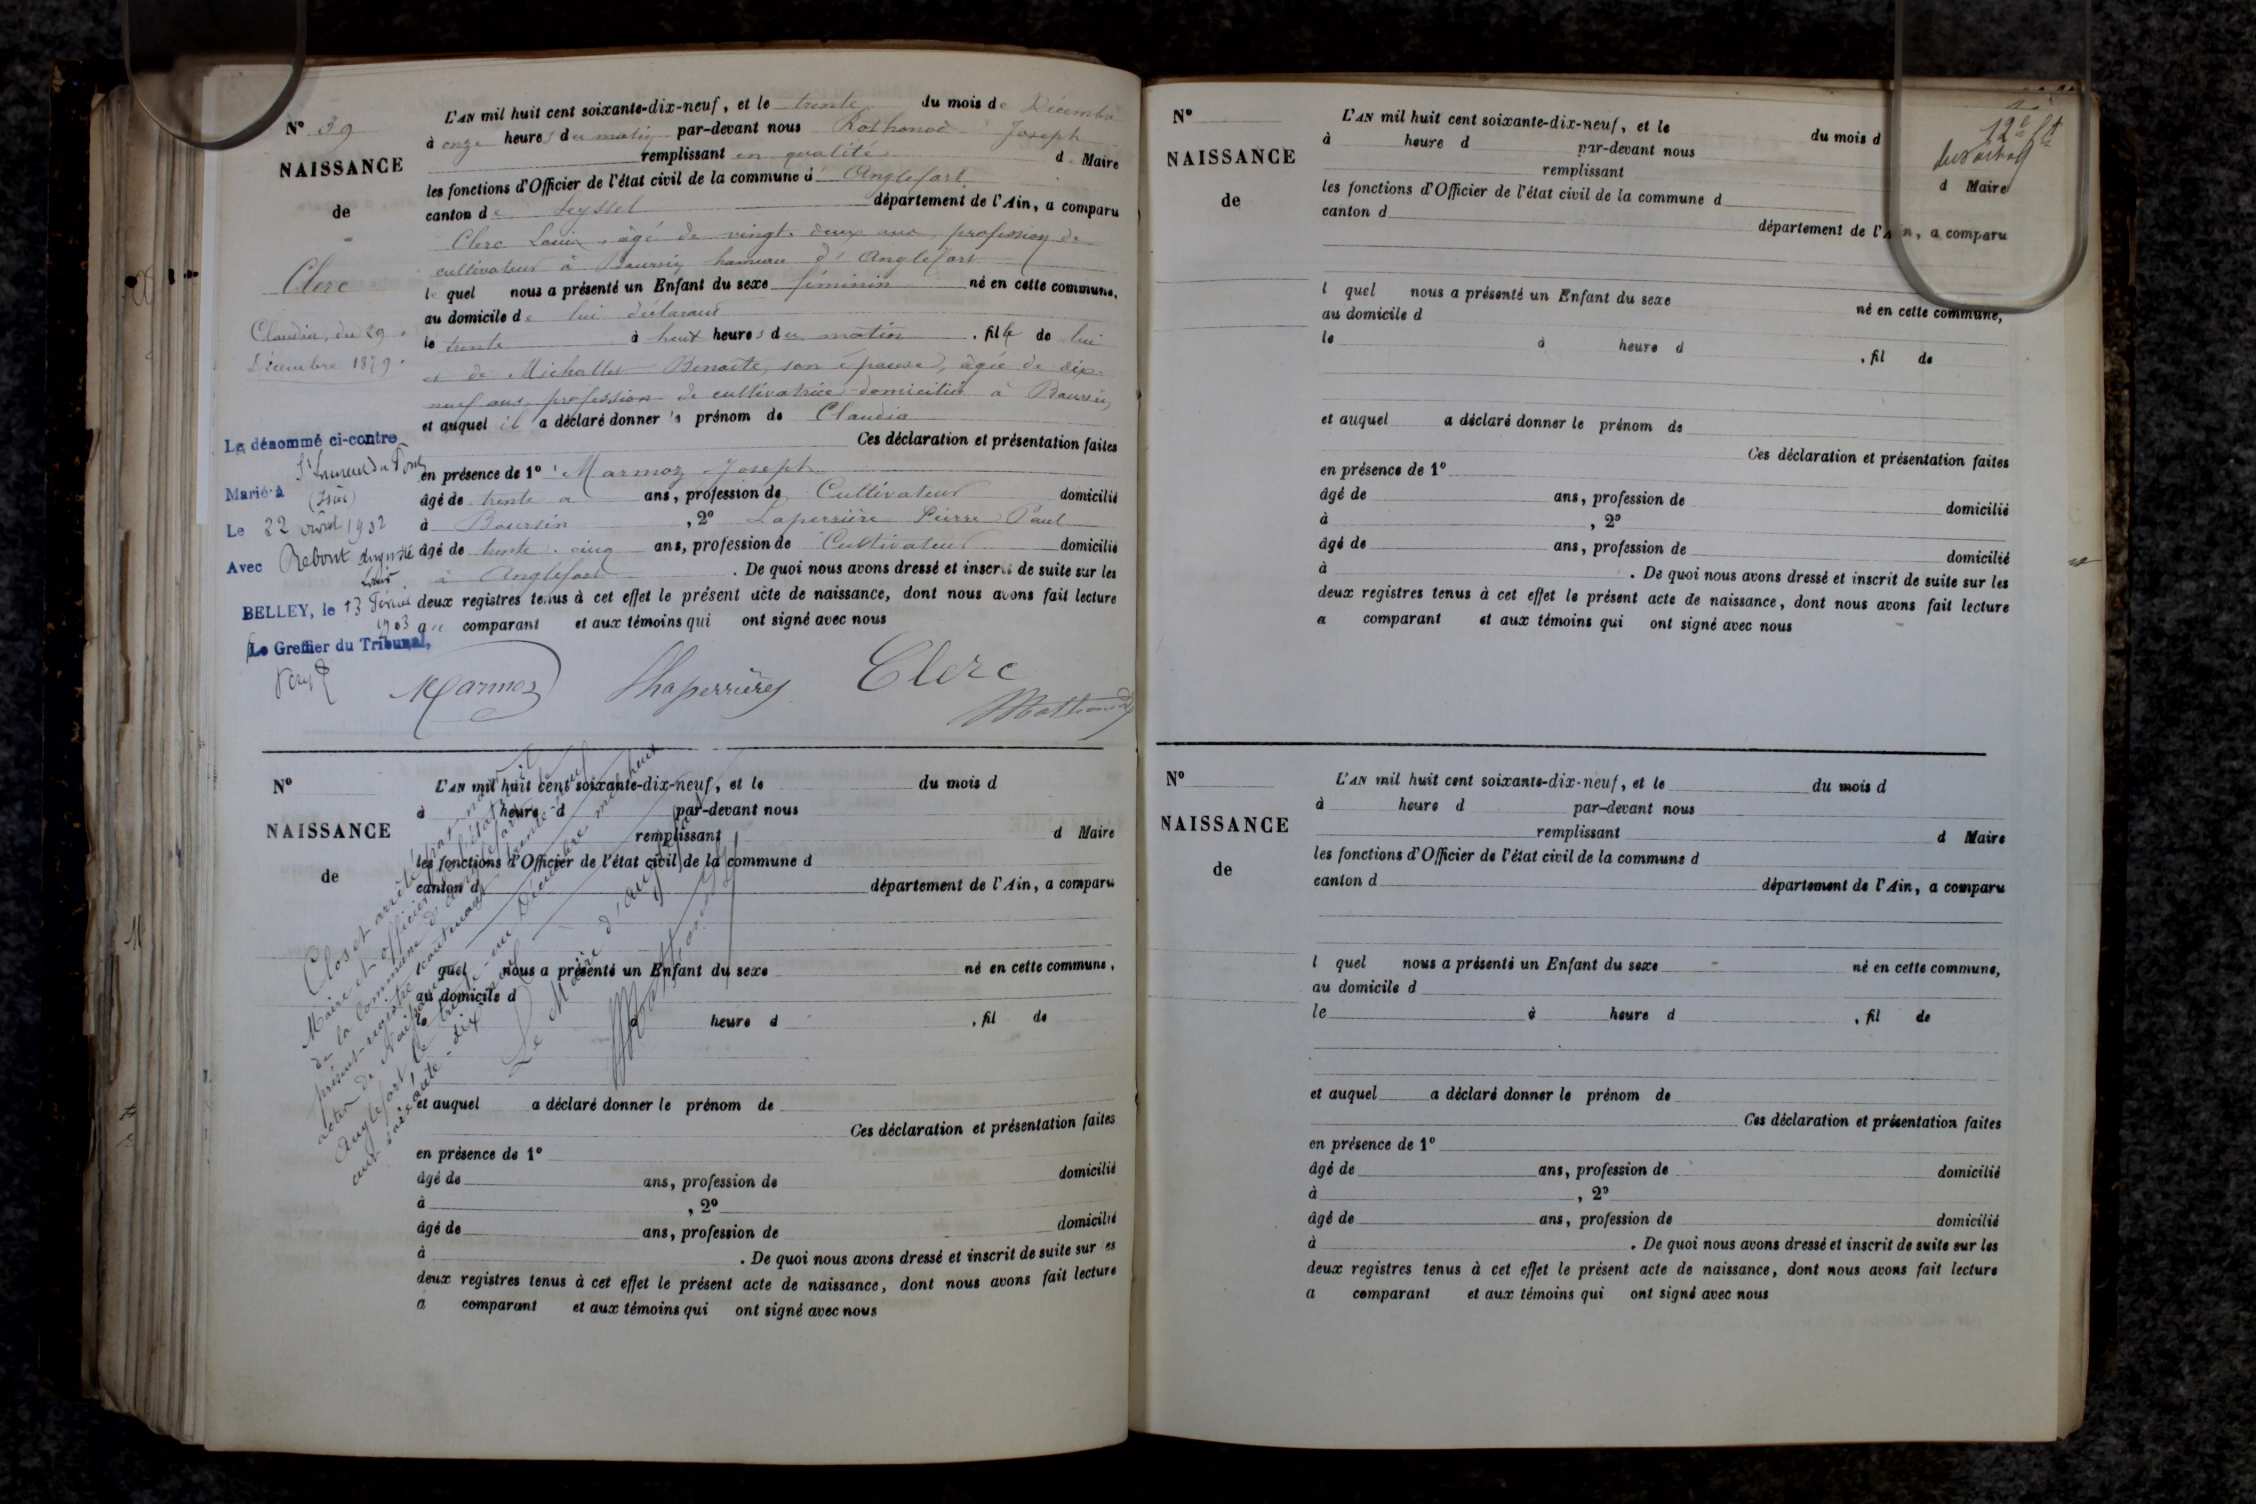 N° 39
NAISSANCE
de
Clerc
Claudia, du 29
Décembre 1879.
L'AN mil huit cent soixante-dix-neuf, et le trente du mois de Décembre
à onze heures du matin par-devant nous Rothonod Joseph
remplissant en qualité d Maire
les fonctions d'Officier de l'état civil de la commune d' Anglefort
canton de Seyssel département de l'Ain, a comparu
Clerc Louis, âgé de vingt deux ans, profession de
cultivateur à Boursin hameau d'Anglefort
le quel nous a présenté un Enfant du sexe féminin né en cette commune,
au domicile de lui déclarant
le trente à huit heures du matin, fille de lui
et de Michallet Benoite, son épouse, âgée de dix-
neuf ans, profession de cultivatrice domiciliée à Boursin
et auquel il a déclaré donner le prénom de Claudia
Ces déclaration et présentation faites
en présence de 1° Marmoz Joseph
âgé de trente ans, profession de Cultivateur domicilié
à Boursin, 2° Laperrière Pierre Paul
âgé de trente-cinq ans, profession de Cultivateur domicilié
à Anglefort. De quoi nous avons dressé et inscrit de suite sur les
deux registres tenus à cet effet le présent acte de naissance, dont nous avons fait lecture
au comparant et aux témoins qui ont signé avec nous
La dénommé ci-contre
St Laurent du Pont
Marié à (Isère)
Le 22 1902
Avec Rebout Auguste
Louis
BELLEY, le 13 Février
1903
Le Greffier du Tribunal,
Marmoz Laperrière Clerc
Rothonod
N°
NAISSANCE
de
L'AN mil huit cent soixante-dix-neuf, et le du mois d
à heure d par-devant nous
remplissant d Maire
les fonctions d'Officier de l'état civil de la commune d
canton d département de l'Ain, a comparu
quel nous a présenté un Enfant du sexe né en cette commune,
au domicile d
le à heure d , fil de
et auquel a déclaré donner le prénom de
Ces déclaration et présentation faites
en présence de 1°
âgé de ans, profession de domicilié
à , 2°
âgé de ans, profession de domicilié
à . De quoi nous avons dressé et inscrit de suite sur les
deux registres tenus à cet effet le présent acte de naissance, dont nous avons fait lecture
a comparant et aux témoins qui ont signé avec nous
Clos et arrêté par nous
Maire et officier de l'état civil
de la Commune d'Anglefort le
présent registre contenant trente neuf
actes de Naissance
Anglefort le trente-un Décembre mil huit
cent soixante-dix neuf
Le Maire d'Anglefort
Rothonod
N°
NAISSANCE
de
L'AN mil huit cent soixante-dix-neuf, et le du mois d
à heure d par-devant nous
remplissant d Maire
les fonctions d'Officier de l'état civil de la commune d
canton d département de l'Ain, a comparu
l quel nous a présenté un Enfant du sexe né en cette commune,
au domicile d
le à heure d , fil de
et auquel a déclaré donner le prénom de
Ces déclaration et présentation faites
en présence de 1°
âgé de ans, profession de domicilié
à , 2°
âgé de ans, profession de domicilié
à . De quoi nous avons dressé et inscrit de suite sur les
deux registres tenus à cet effet le présent acte de naissance, dont nous avons fait lecture
a comparant et aux témoins qui ont signé avec nous
N°
NAISSANCE
de
L'AN mil huit cent soixante-dix-neuf, et le du mois d
à heure d par-devant nous
remplissant d Maire
les fonctions d'Officier de l'état civil de la commune d
canton d département de l'Ain, a comparu
l quel nous a présenté un Enfant du sexe né en cette commune,
au domicile d
le à heure d , fil de
et auquel a déclaré donner le prénom de
Ces déclaration et présentation faites
en présence de 1°
âgé de ans, profession de domicilié
à , 2°
âgé de ans, profession de domicilié
à . De quoi nous avons dressé et inscrit de suite sur les
deux registres tenus à cet effet le présent acte de naissance, dont nous avons fait lecture
a comparant et aux témoins qui ont signé avec nous